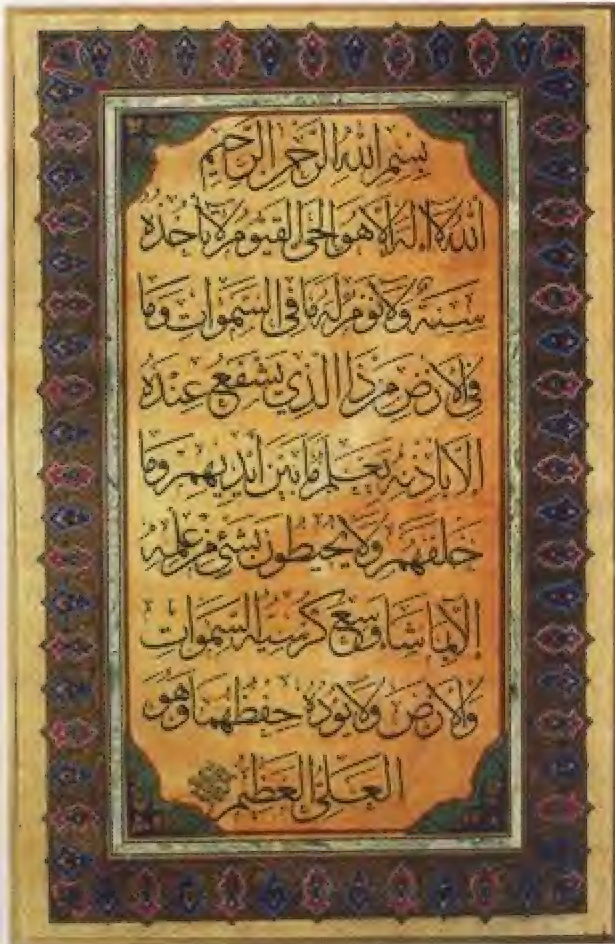 بِسْمِ اللهِ الرَّحْمٰنِ الرَّحِيمِ
اَللهُ لَا اِلٰهَ اِلَّا هُوَ الْحَىُّ الْقَيُّومُ لَا تَأْخُذُهُ
سِنَةٌ وَلَا نَوْمٌ لَهُ مَا فِى السَّمٰوَاتِ وَمَا
فِى الْاَرْضِ مَنْ ذَا الَّذِى يَشْفَعُ عِنْدَهُ
اِلَّا بِاِذْنِهِ يَعْلَمُ مَا بَيْنَ اَيْدِيهِمْ وَمَا
خَلْفَهُمْ وَلَا يُحِيطُونَ بِشَىْءٍ مِنْ عِلْمِهِ
اِلَّا بِمَا شَاءَ وَسِعَ كُرْسِيُّهُ السَّمٰوَاتِ
وَالْاَرْضَ وَلَا يَؤُدُهُ حِفْظُهُمَا وَهُوَ
الْعَلِىُّ الْعَظِيمُ